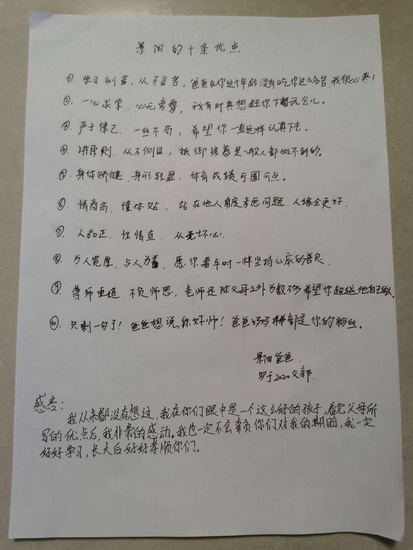 景阳的十条优点
①. 学习刻苦，从不言苦，爸爸在你这个年龄没有吃你这么多苦 我很心疼！
②. 一心求学，心无旁骛，我有时真想赶你下楼玩会儿。
③. 严于律己，一丝不苟，希望你一直这样认真下去。
④. 讲原则，从不例外，抵御诱惑是一般人都做不到的。
⑤. 身体矫健，身形轻盈，体育成绩可圈可点。
⑥. 情商高，懂体贴，站在他人角度考虑问题，人缘会更好。
⑦. 人品正，性情直，从无坏心。
⑧. 为人宽厚，与人为善，愿你一样坚持心底的善良
⑨. 尊师重道，不负师恩，老师是除父母之外为数不多希望你超越他自己的人
⑩. 只剩一句了！爸爸想说，你好帅！爸爸妈妈都是你的粉丝。
景阳爸爸
感言：
我从来都没有想过，我在你们眼中是一个这么好的孩子，看完父母所
写的优点后，我非常的感动。我也一定不会辜负你们对我的期盼，我一定
好好学习，长大后好好孝顺你们。